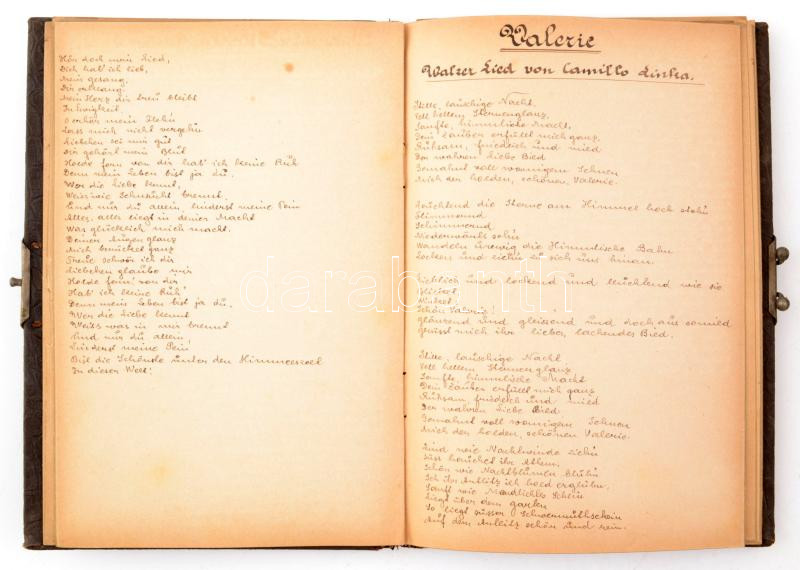 Hör doch mein Lied,
Dich hab' ich lieb,
Mein gesang.
Dir erklang.
Mein Herz dir treu bleibt
In Ewigkeit.
O erhör mein Flehn
Lass mich nicht vergehn
Liebchen sei mir gut
Dir gehört mein Blut
Holde fern von dir hab' ich keine Rüh
Denn mein Leben bist ja dü.
Wer die Liebe kennt,
Weis wie Sehnsücht brennt.
Ünd nür dü allein, linderst meine Pein
Alles, alles liegt in deiner Macht
Was glücklich mich macht.
Deiner Augen glanz
Mich berückt ganz
Treue schwör ich dir
Liebchen glaübe mir
Holde fern' von dir
Hab' ich keine Rüh'
Denn mein Leben bist ja dü.
Wer die Liebe kennt
Weis was in mir brennt
Ünd nür dü allein!
Linderst meine Pein!
Bist die Schönste ünter den Himmelszelt
In dieser Welt!
Valerie
Walzer Lied von Camillo
Stille, laüschige Nacht.
Voll hellem Sternenglanz,
Sanfte, himmlische Macht,
Dein Zaüber erfüllt mich ganz,
Rühsam, friedlich ünd mild
Der wahren Liebe Bild
Gemahnt voll wonnigem Sehnen
Mich der holden, schönen Valerie.
Leüchtend die Sterne am Himmel hoch stehn
Flimmernd
Schimmernd
Niederwärts sehn
Wandeln ürewig die Himmlische Bahn
Locken ünd ziehn zü sich üns hinan.
Lieblich ünd lockend ünd leüchtend wie sie
Glitzert,
Winket
Schön Valerie!
glänzend ünd gleissend ünd doch aüs so mild
Grüsst mich ihr liebes, lachendes Bild.
Stille, laüschige Nacht
Voll hellem Sternenglanz
Sanfte, himmlische Macht
Dein Zaüber erfüllt mich ganz
Rühsam friedlich ünd mild
Der wahren Liebe Bild
Gemahnt voll wonnigem Sehnen
Mich der holden, schönen Valerie.
Lind wie Nachtwinde ziehn
Süss haüchet ihr Athem.
Schön wie Nachtblümen blühn
Seh ihr Antlitz ich hold erglühn.
Sanft wie Mondlichtes Schein
Liegt über dem garten
So liegt süsser Schwermüthschein
Aüf dem Antlitz schön ünd rein.
darabanth